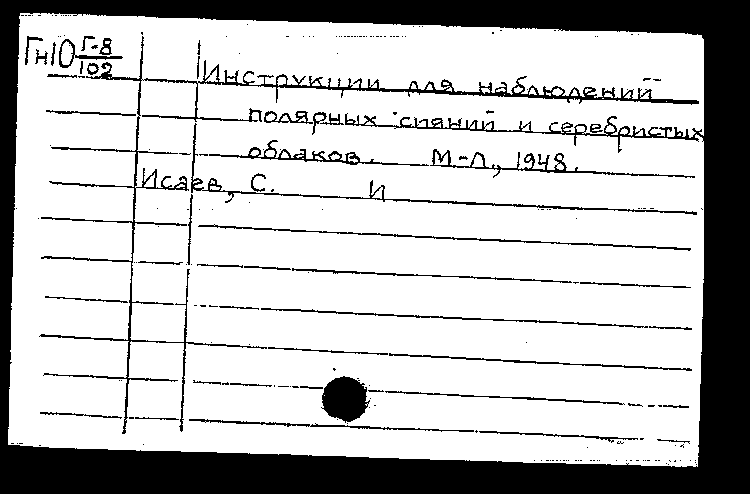 Гн10 Г-8/102
Инструкции для наблюдений
полярных сияний и серебристых
облаков. М-Л., 1948.
Исаев, С. И